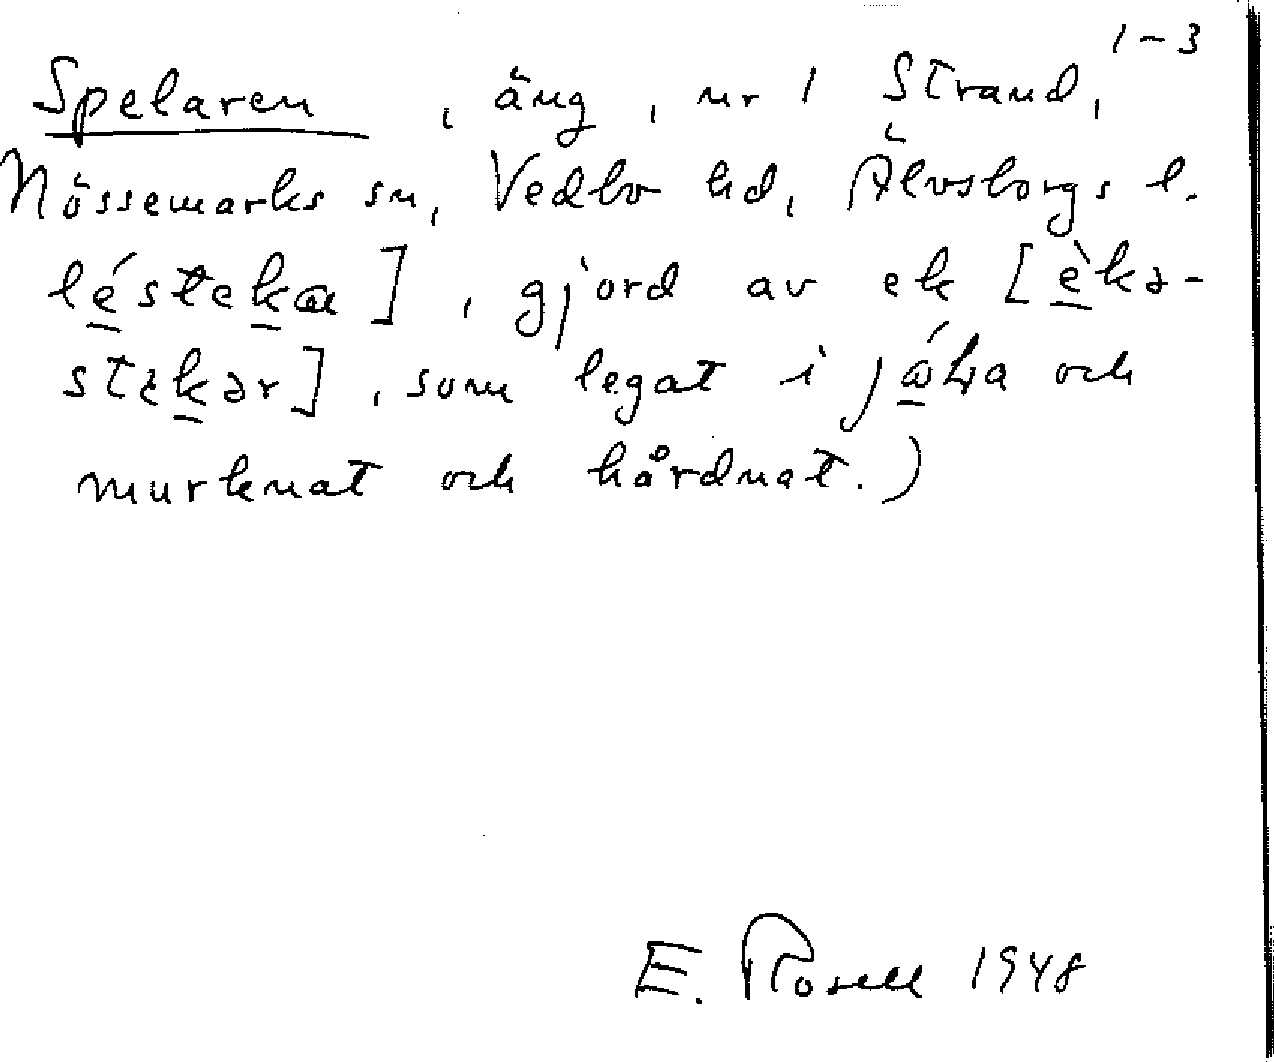 1-3
Spelaren, äng, nr 1 Strand,
Nössemarks sn, Vedbo hd, Älvsborgs l.
léstekæ], gjord av ek [èkə-
stekər], som legat i och
murknat och hårdnat.)
E. Rosell 1948